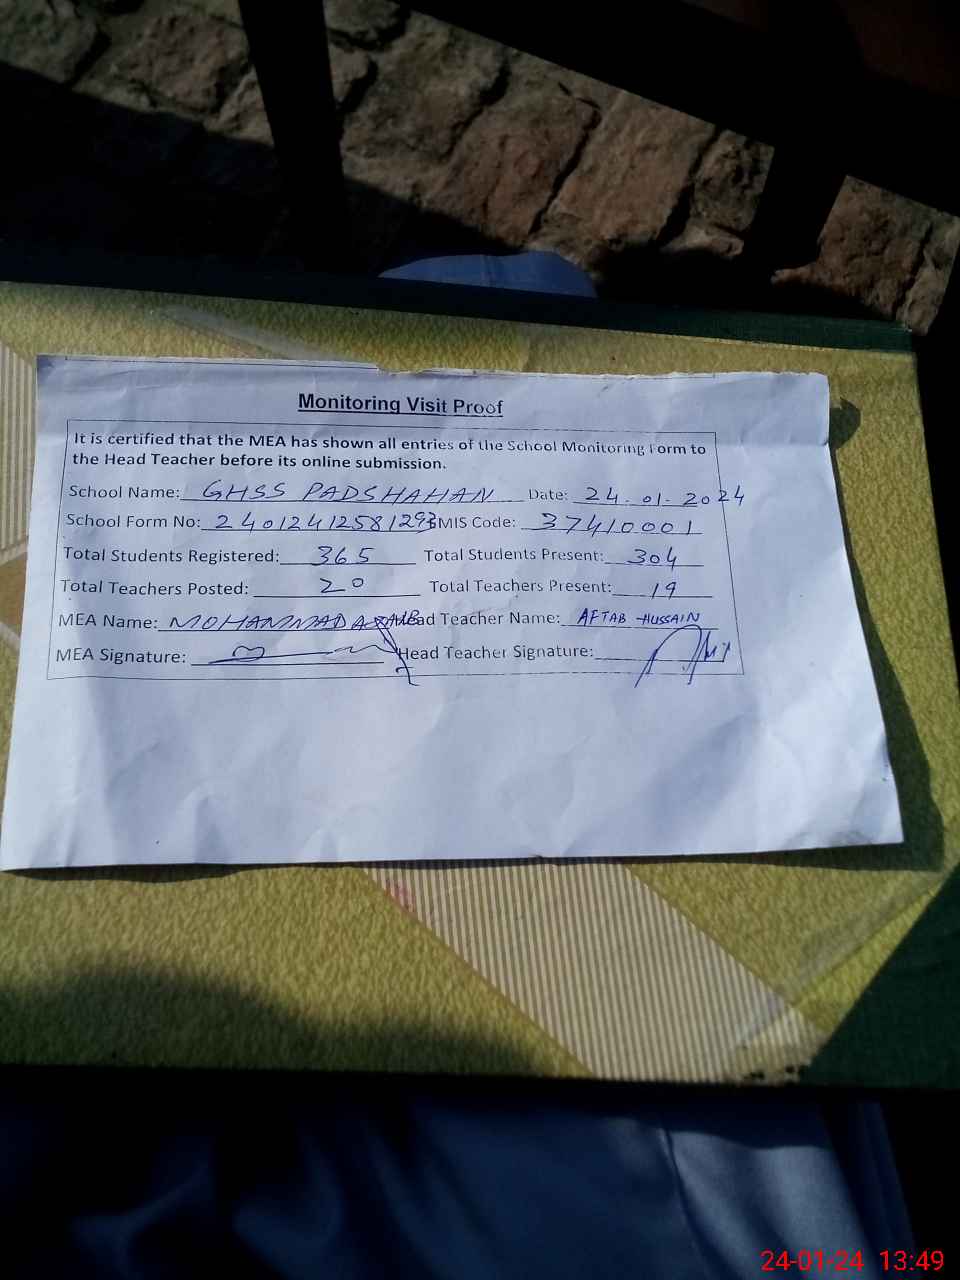 Monitoring Visit Proof
It is certified that the MEA has shown all entries of the School Monitoring Form to
the Head Teacher before its online submission.
School Name: GHSS PADSHAHAN Date: 24.01.2024
School Form No: 24012412581293 MIS Code: 37410001
Total Students Registered: 365 Total Students Present: 304
Total Teachers Posted: 20 Total Teachers Present: 19
MEA Name: MOHAMMAD Head Teacher Name: AFTAB HUSSAIN
MEA Signature: Head Teacher Signature:
24-01-24 13:49